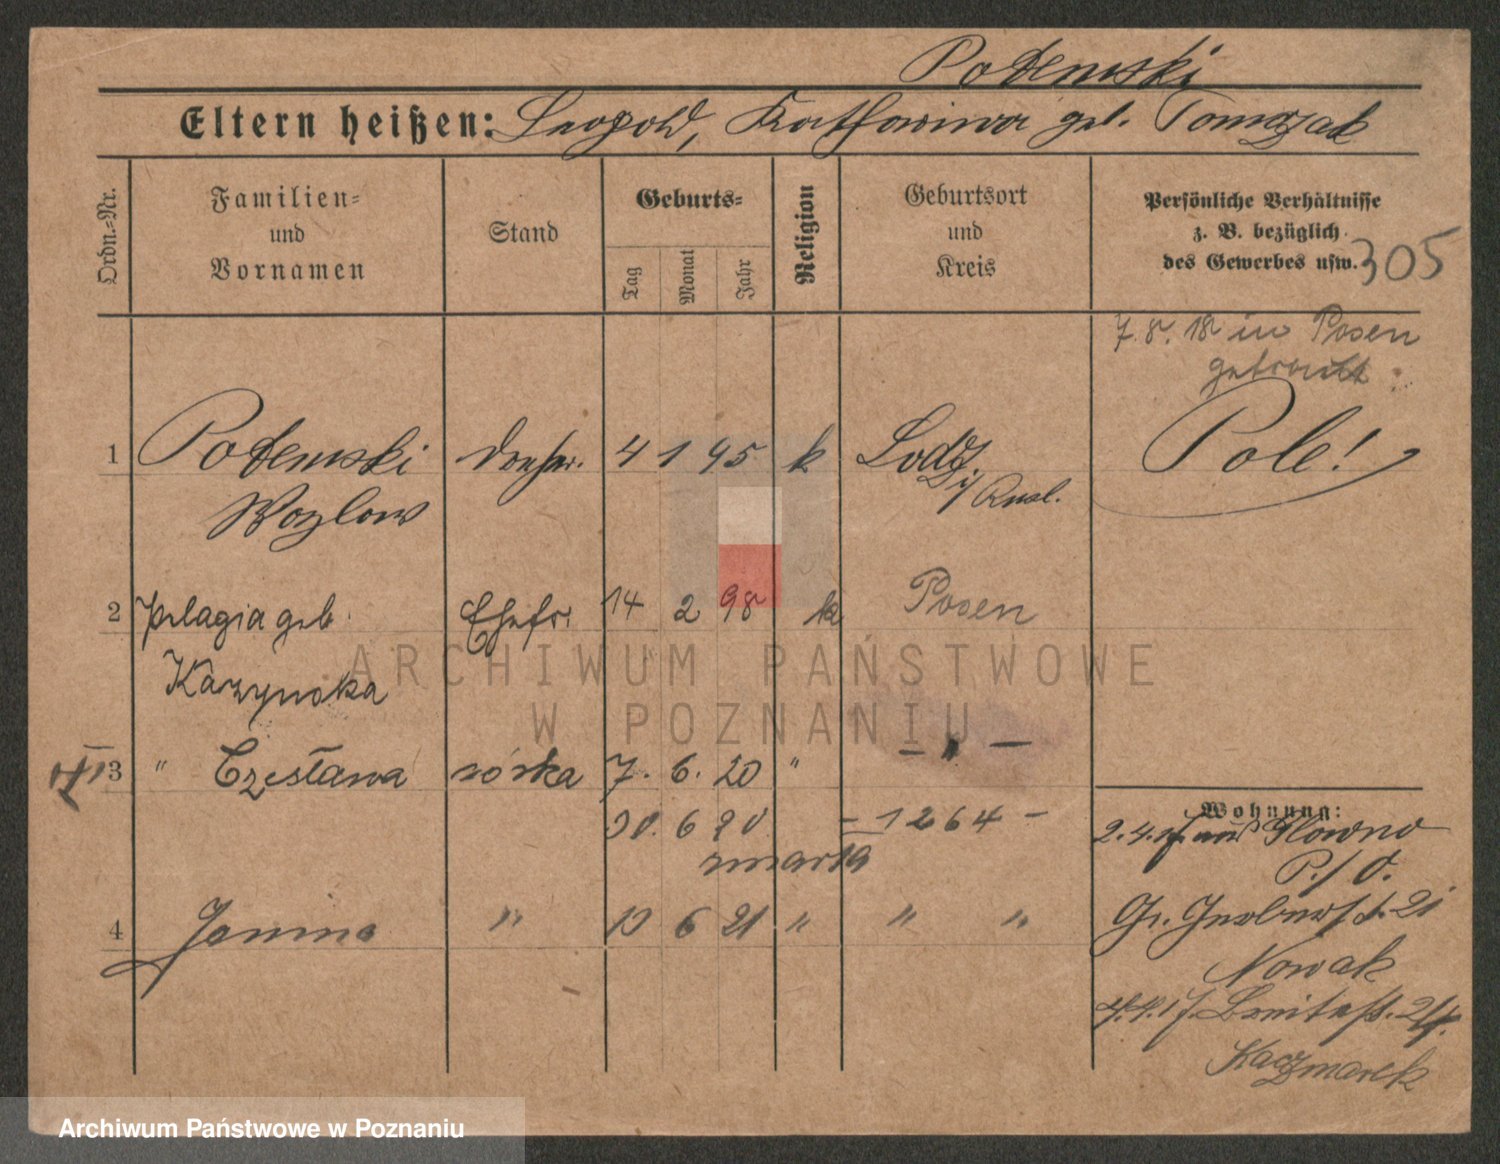 Podemski
Eltern heißen: Leopold, Katharina geb. Tomczak
Ordn.-Nr.
Familien-
und
Vornamen
Stand
Geburts-
Tag
Monat
Jahr
Religion
Geburtsort
und
Kreis
Persönliche Verhältnisse
z. B. bezüglich
des Gewerbes usw.
305
7. 8. 18 in Posen
getraut.
1 Podemski 4 1 95 k Lodz Pole!
i/ Rusl.
2 Pelagia geb. Ehefr. 14 2 98 k Posen
Kazynska
3 " Czesława córka 7. 6. 20 " - " -
30. 6 20 - 1264 -
zmarła
4 Janina " 10 6 21 " " "
Wohnung:
2. 4. 17 aus Glowno
P./O.
Gr. Gerberst. 21
Nowak
Breitestr.
Kaczmarek
ARCHIWUM PAŃSTWOWE
W POZNANIU
Archiwum Państwowe w Poznaniu